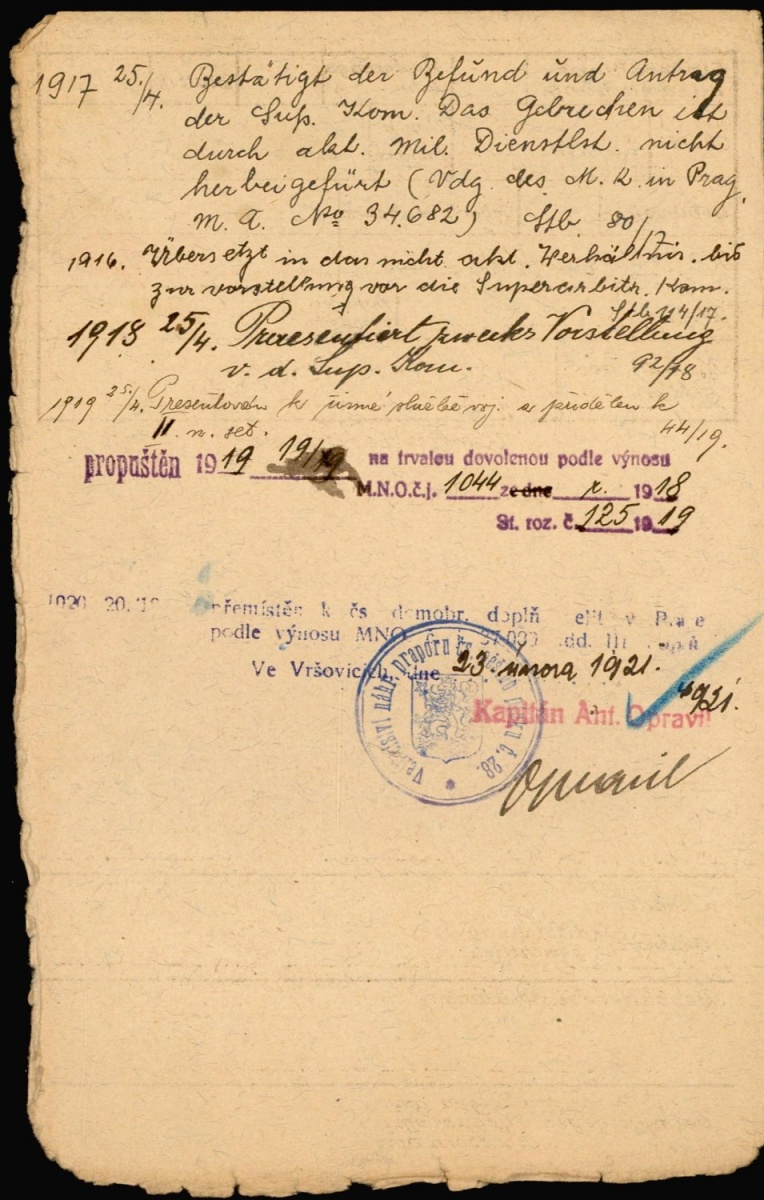 1917 25./4. Bestätigt der Befund und Antrag
der Sup. Kom. Das Gebrechen ist
durch akt. Mil. Dienstlst. nicht
herbeigefürt (Vdg. des M. K. in Prag,
M. A. No 34.682) Stb 80/17
1916. Übersetzt in das nicht akt. Verhältnis. bis
zur vorstellung vor die Superarbitr. Kom.
Stb 214/17.
1918 25/4. Praesentiert zwecks Vorstellung
v. d. Sup. Kom. 92/18
1919 25./4. Presentován k činné službě voj. a přidělen k
II. n. set. 44/19.
propuštěn 1919 19/19 na trvalou dovolenou podle výnosu
M.N.O.č.j. 1044 ze dne x. 1918
St. roz. č. 125 1919
1920 20. přemístěn k čs domobr. doplň velit v Praze
podle výnosu MNO
Ve Vršovicích, dne 23. února 1921.
Kapitán Ant. Opravil
Opravil